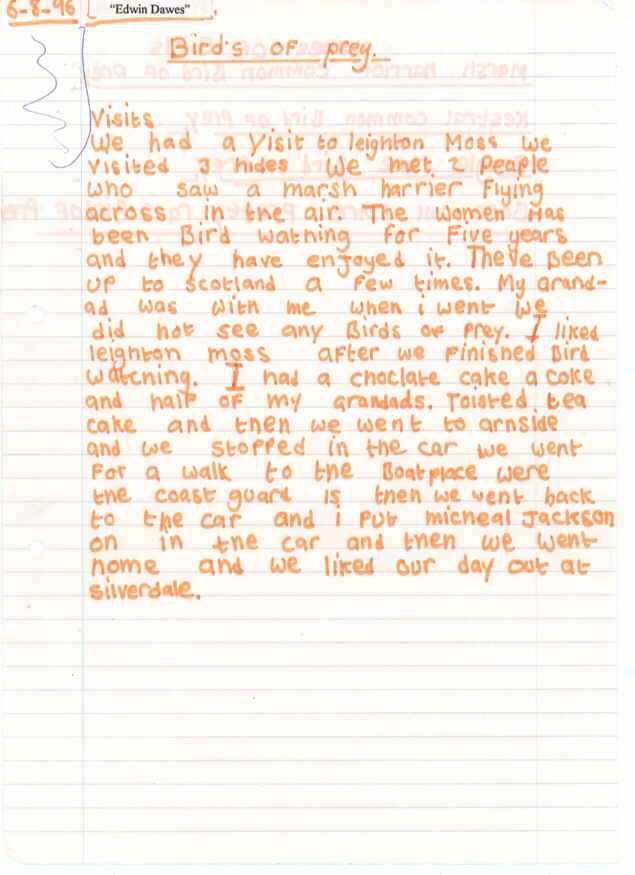 6-8-96 "Edwin Dawes"
Bird's of prey.
Visits
We had a visit to leighton Moss we
visited 3 hides We met 2 people
who saw a marsh harrier Flying
across in the air. The women Has
been Bird watning for Five years
and they have enjoyed it. Theve Been
up to scotland a few times. My grand-
ad was with me when i went We
did not see any Birds of Prey. I liked
leighton moss after we finished Bird
watching. I had a choclate cake a coke
and half of my grandads. Toisted tea
cake and then we went to arnside
and we stopped in the car we went
For a walk to the Boatplace were
the coast guard is then we went back
to the car and i put micheal Jackson
on in the car and then we went
home and we liked our day out at
silverdale.